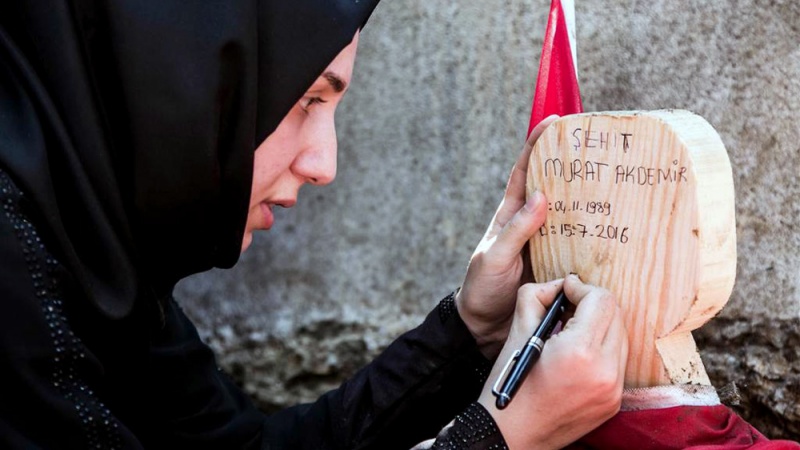 ŞEHIT
MURAT AKDEMİR
: 04.11.1989
: 15.7.2016